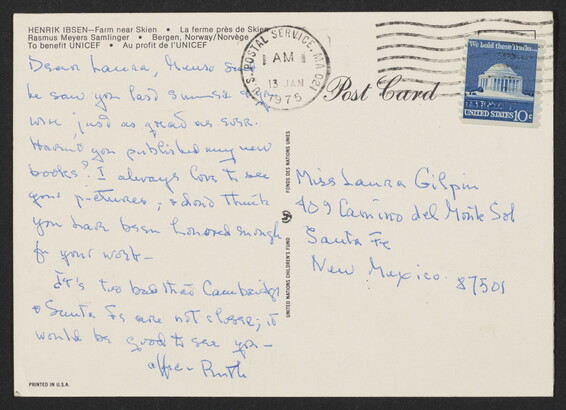 HENRIK IBSEN—Farm near Skien • La ferme près de Skien
Rasmus Meyers Samlinger • Bergen, Norway/Norvège
To benefit UNICEF • Au profit de l'UNICEF
Dear Laura
he saw you last summer & you
were just as great as ever.
Haven't you published any new
books? I always love to see
your pictures, & don't think
you have been honored enough
for your work—
It's too bad that Cambridge
& Santa Fe are not closer; it
would be good to see you—
Ruth
PRINTED IN U.S.A.
UNITED NATIONS CHILDREN'S FUND
FONDS DES NATIONS UNIES
U.S. POSTAL SERVICE, MA 021
AM
13 JAN
1975
Post Card
We hold these truths...
UNITED STATES 10c
Miss Laura Gilpin
409 Camino del Monte Sol
Santa Fe
New Mexico 87501